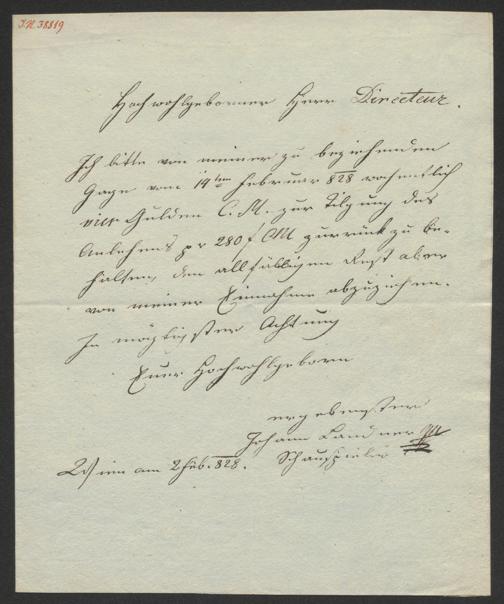 I.N. 38819
Hochwohlgeborner Herr Directeur.
Ich bitte von meiner zu beziehenden
Gage vom 19ten Februar 828 wochentlich
vier Gulden C. M. zur Tilgung des
Anlehens pr 280 f CM zurrück zu be-
halten, den allfälligen Rest aber
von meiner Einnahme abzuziehen.
In möglichster Achtung
Euer Hochwohlgeborn
ergebenster
Johann Landner
Schauspieler
Wien am 2 Feb. 828.